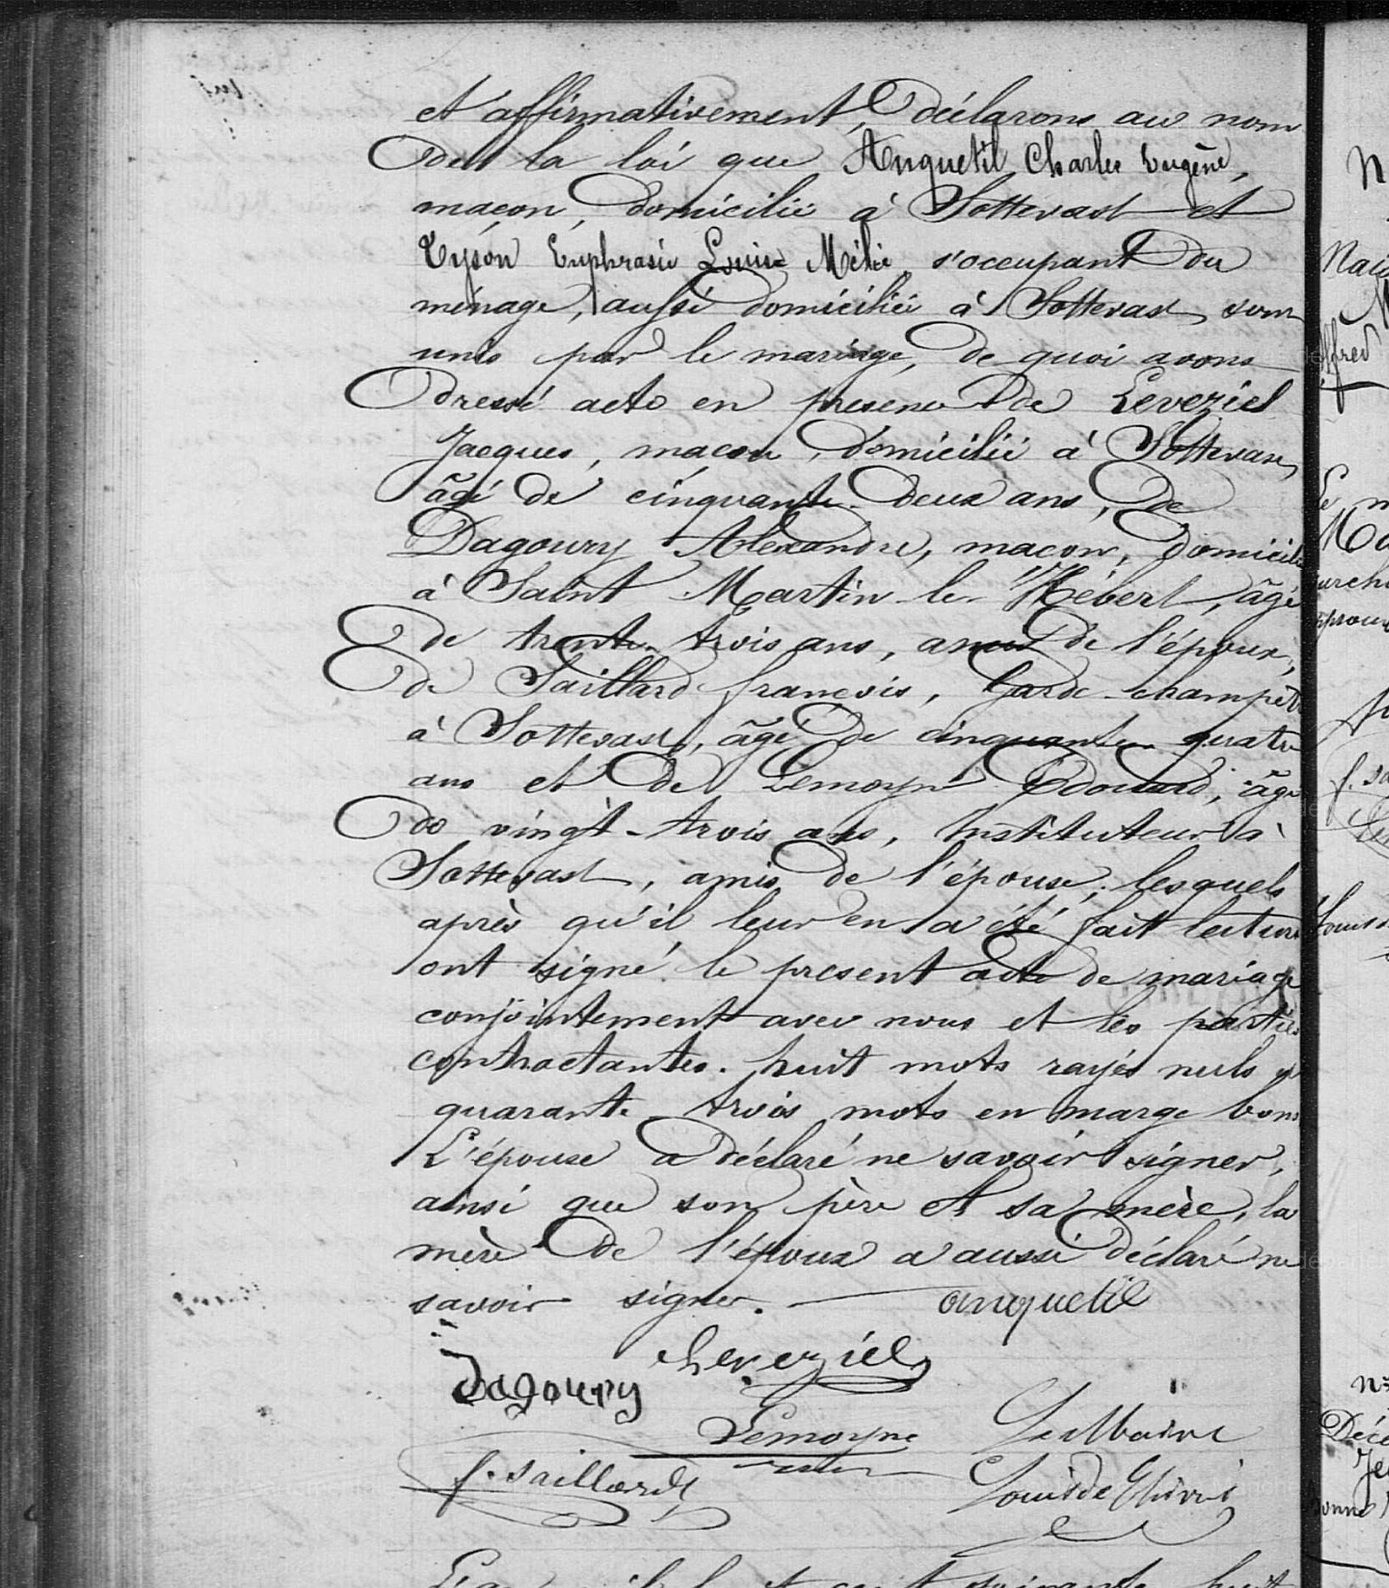 et affirmativement, déclarons au nom
de la loi que Anquetil Charles Eugène,
maçon, domicilié à Sottevast et
Tyson Euphrasie Louise Mélie, s'occupant du
ménage, aussi domiciliée à Sottevast, sont
unis par le mariage, de quoi avons
dressé acte en presence de Leveziel
Jacques, maçon, domicilié à Sottevast,
âgé de cinquante-deux ans, de
Dagoury Alexandre, maçon, domicilié
à Saint Martin le Hébert, âgé
de trente-trois ans, amis de l'époux,
de Saillard françois, Garde-champêt
à Sottevast, âgé de cinquante-quatre
ans et de Lemoyne Edouard, âgé
de vingt-trois ans, Instituteur à
Sottevast, amis de l'épouse; lesquels
après qu'il leur en a été fait lecture
ont signé le present acte de mariage
conjointement avec nous et les parties
contractantes. huit mots rayés nuls &
quarante-trois mots en marge bons
L'épouse a déclaré ne savoir signer,
ainsi que son père et sa mère, la
mère de l'époux a aussi déclaré ne
savoir signer. anquetil
Leveziel
Dagoury
Lemoyne Le Maire
f. Saillard